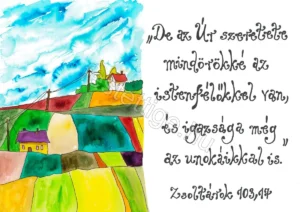 „De az Úr szeretete
mindörökké az
istenfélőkkel van,
és igazsága még
az unokáikkal is.”
Zsoltárok 103,17